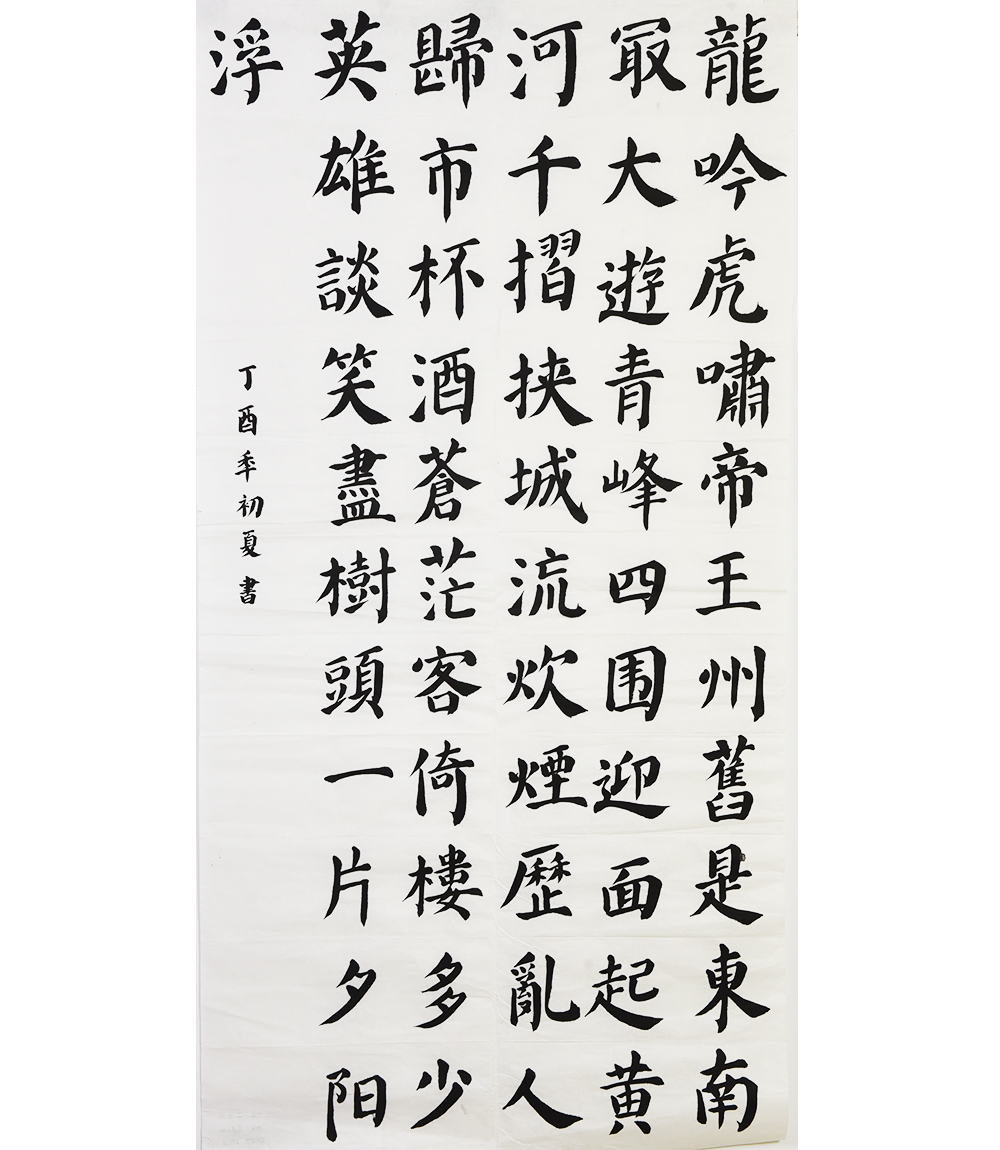 龍吟虎嘯帝王州舊是東南
冣大遊青峰四围迎面起黄
河千摺挟城流炊煙歷亂人
歸市杯酒蒼茫客倚樓多少
英雄談笑盡樹頭一片夕阳
浮
丁酉年初夏書